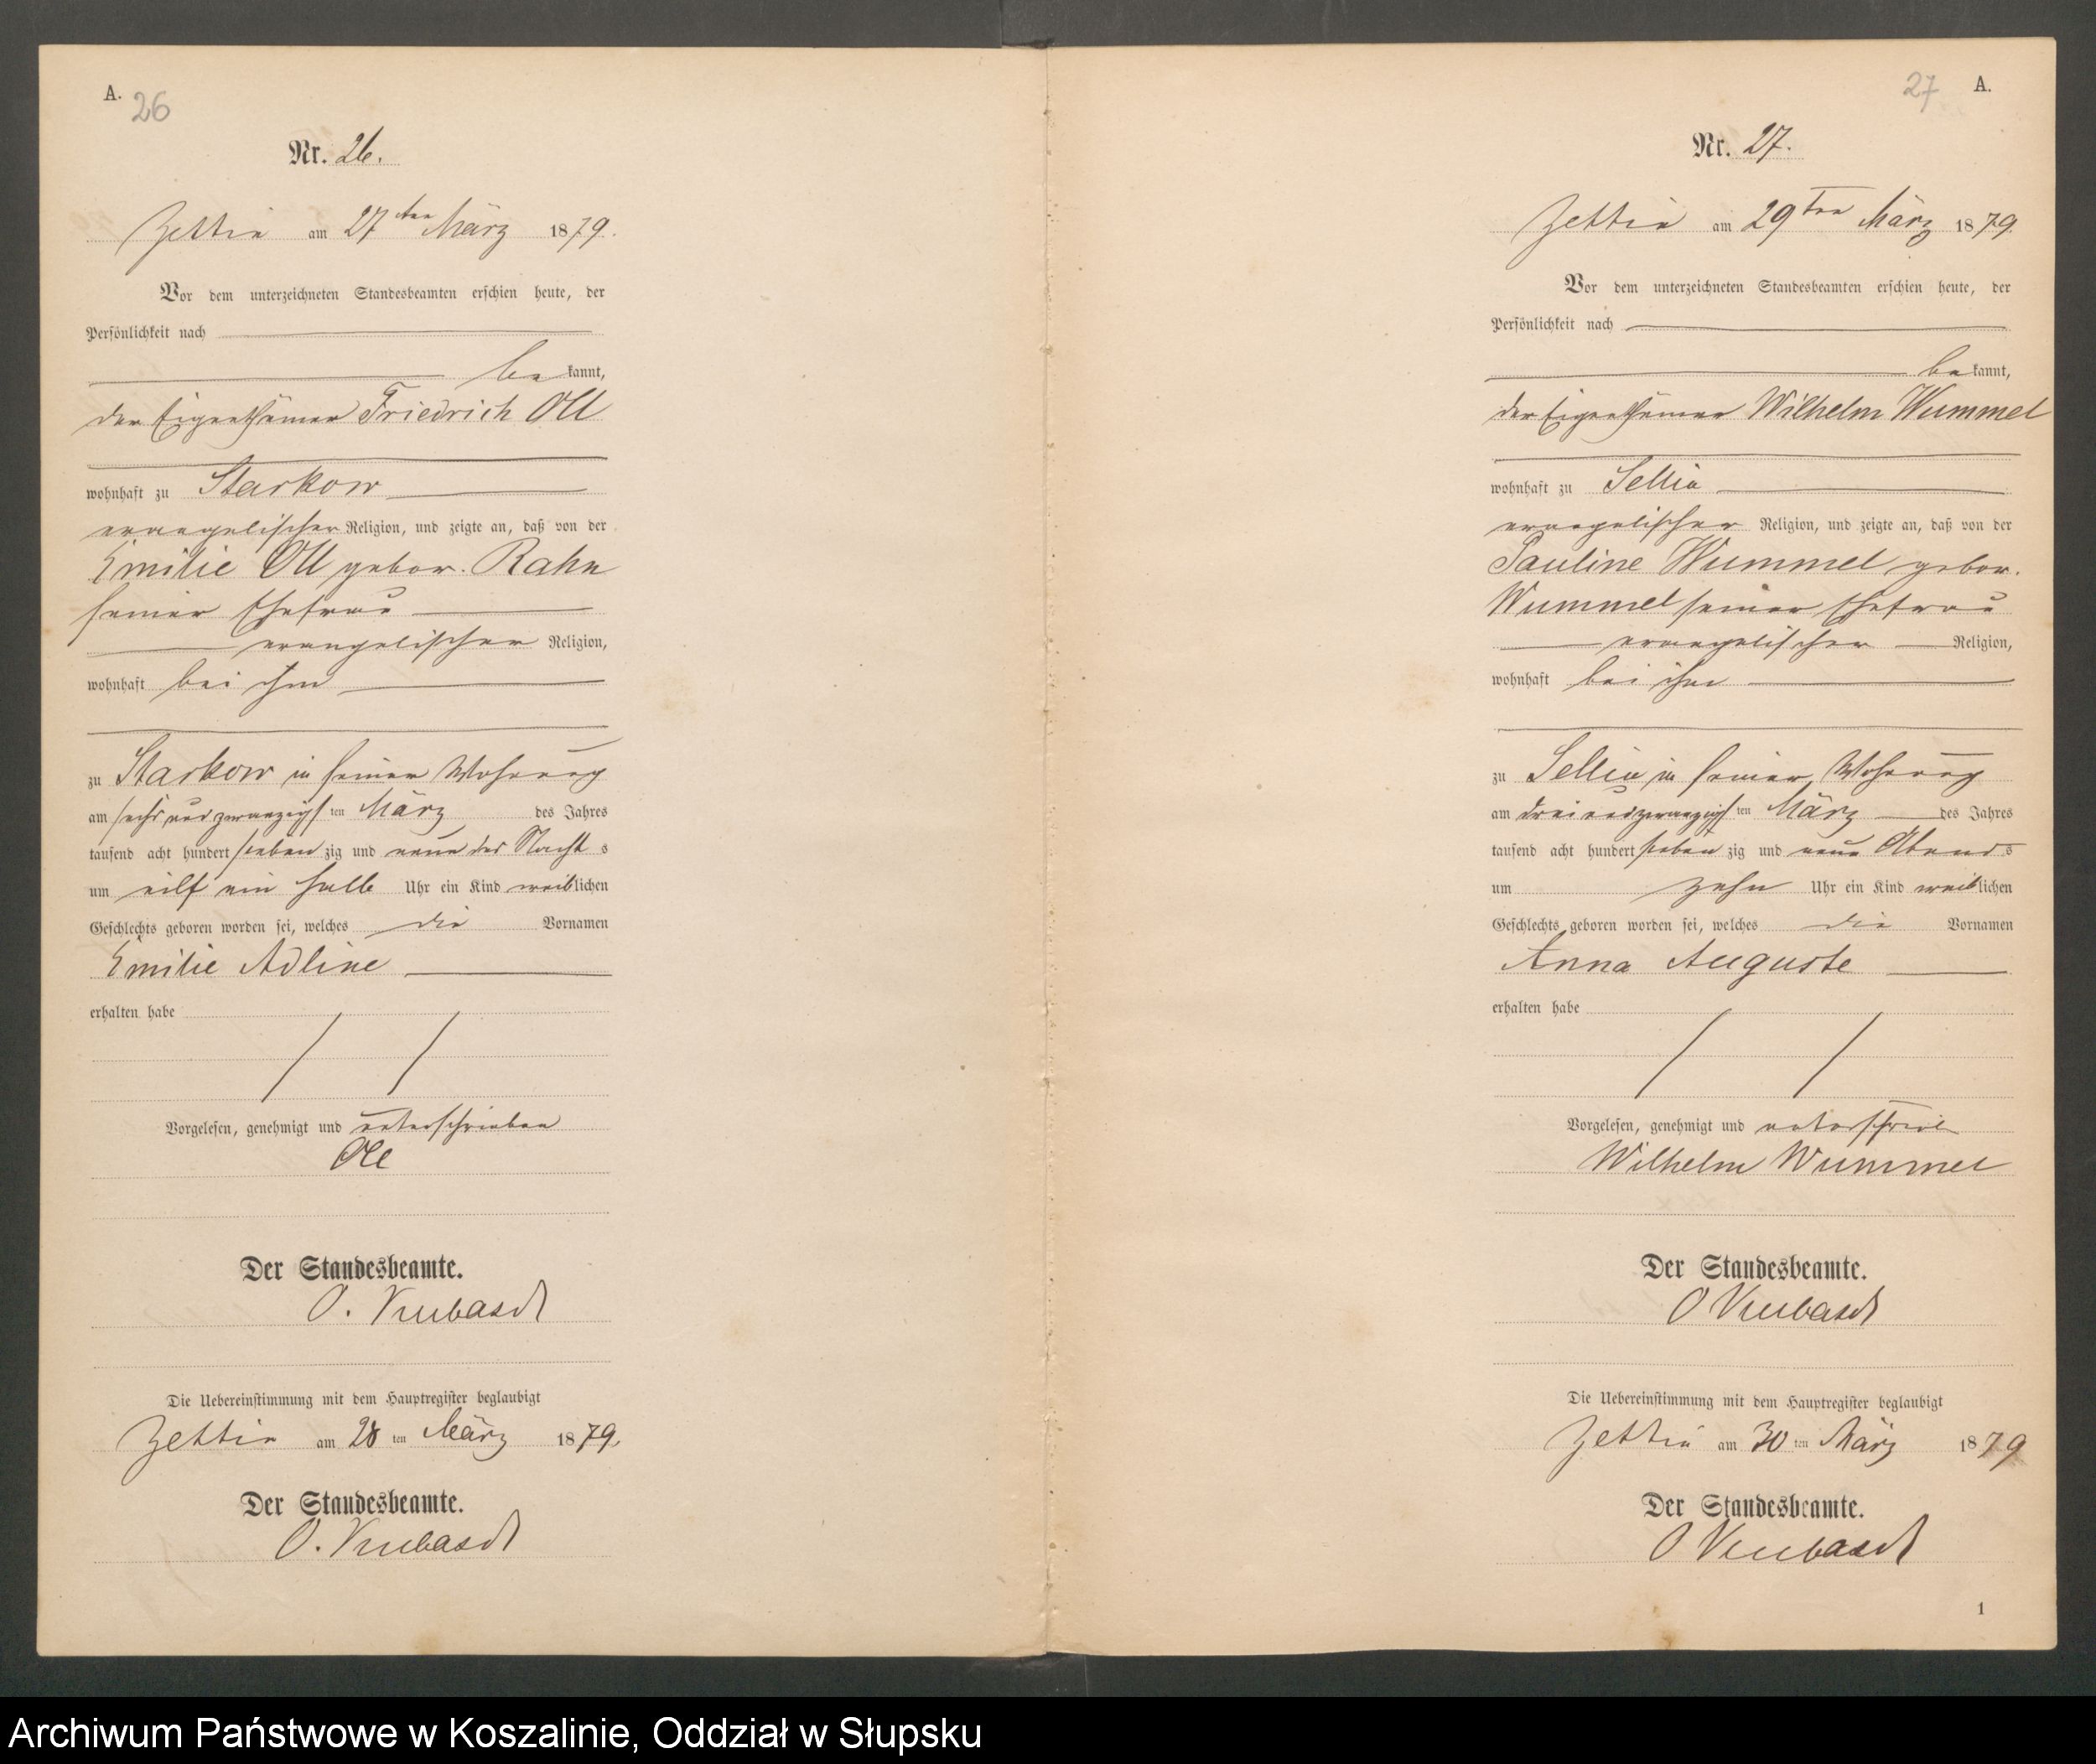 A.
26
Nr. 26.
Zettin am 27ten März 1879.
Vor dem unterzeichneten Standesbeamten erschien heute, der
Persönlichkeit nach
bekannt,
der Eigenthümer Friedrich Oll
wohnhaft zu Starkow
evangelischer Religion, und zeigte an, daß von der
Emilie Oll gebor. Rahn
seiner Ehefrau
evangelischer Religion,
wohnhaft bei ihm
zu Starkow in seiner Wohnung
am sechs und zwanzigsten März des Jahres
tausend acht hundert siebenzig und neun des Nachts
um eilf ein halb Uhr ein Kind weiblichen
Geschlechts geboren worden sei, welches die Vornamen
Emilie Adline
erhalten habe
Vorgelesen, genehmigt und unterschrieben
Oll
Der Standesbeamte.
O.
Die Uebereinstimmung mit dem Hauptregister beglaubigt
Zettin am 28ten März 1879.
Der Standesbeamte.
O.
27 A.
Nr. 27.
Zettin am 29ten März 1879.
Vor dem unterzeichneten Standesbeamten erschien heute, der
Persönlichkeit nach
bekannt,
der Eigenthümer Wilhelm Wummel
wohnhaft zu Sellin
evangelischer Religion, und zeigte an, daß von der
Pauline Wummel gebor.
Wummel seiner Ehefrau
evangelischer Religion,
wohnhaft bei ihm
zu Sellin in seiner Wohnung
am dreiundzwanzigsten März des Jahres
tausend acht hundert siebenzig und neun Abends
um zehn Uhr ein Kind weiblichen
Geschlechts geboren worden sei, welches die Vornamen
Anna Auguste
erhalten habe
Vorgelesen, genehmigt und unterschrieb
Wilhelm Wummel
Der Standesbeamte.
O
Die Uebereinstimmung mit dem Hauptregister beglaubigt
Zettin am 30ten März 1879
Der Standesbeamte.
O
1
Archiwum Państwowe w Koszalinie, Oddział w Słupsku